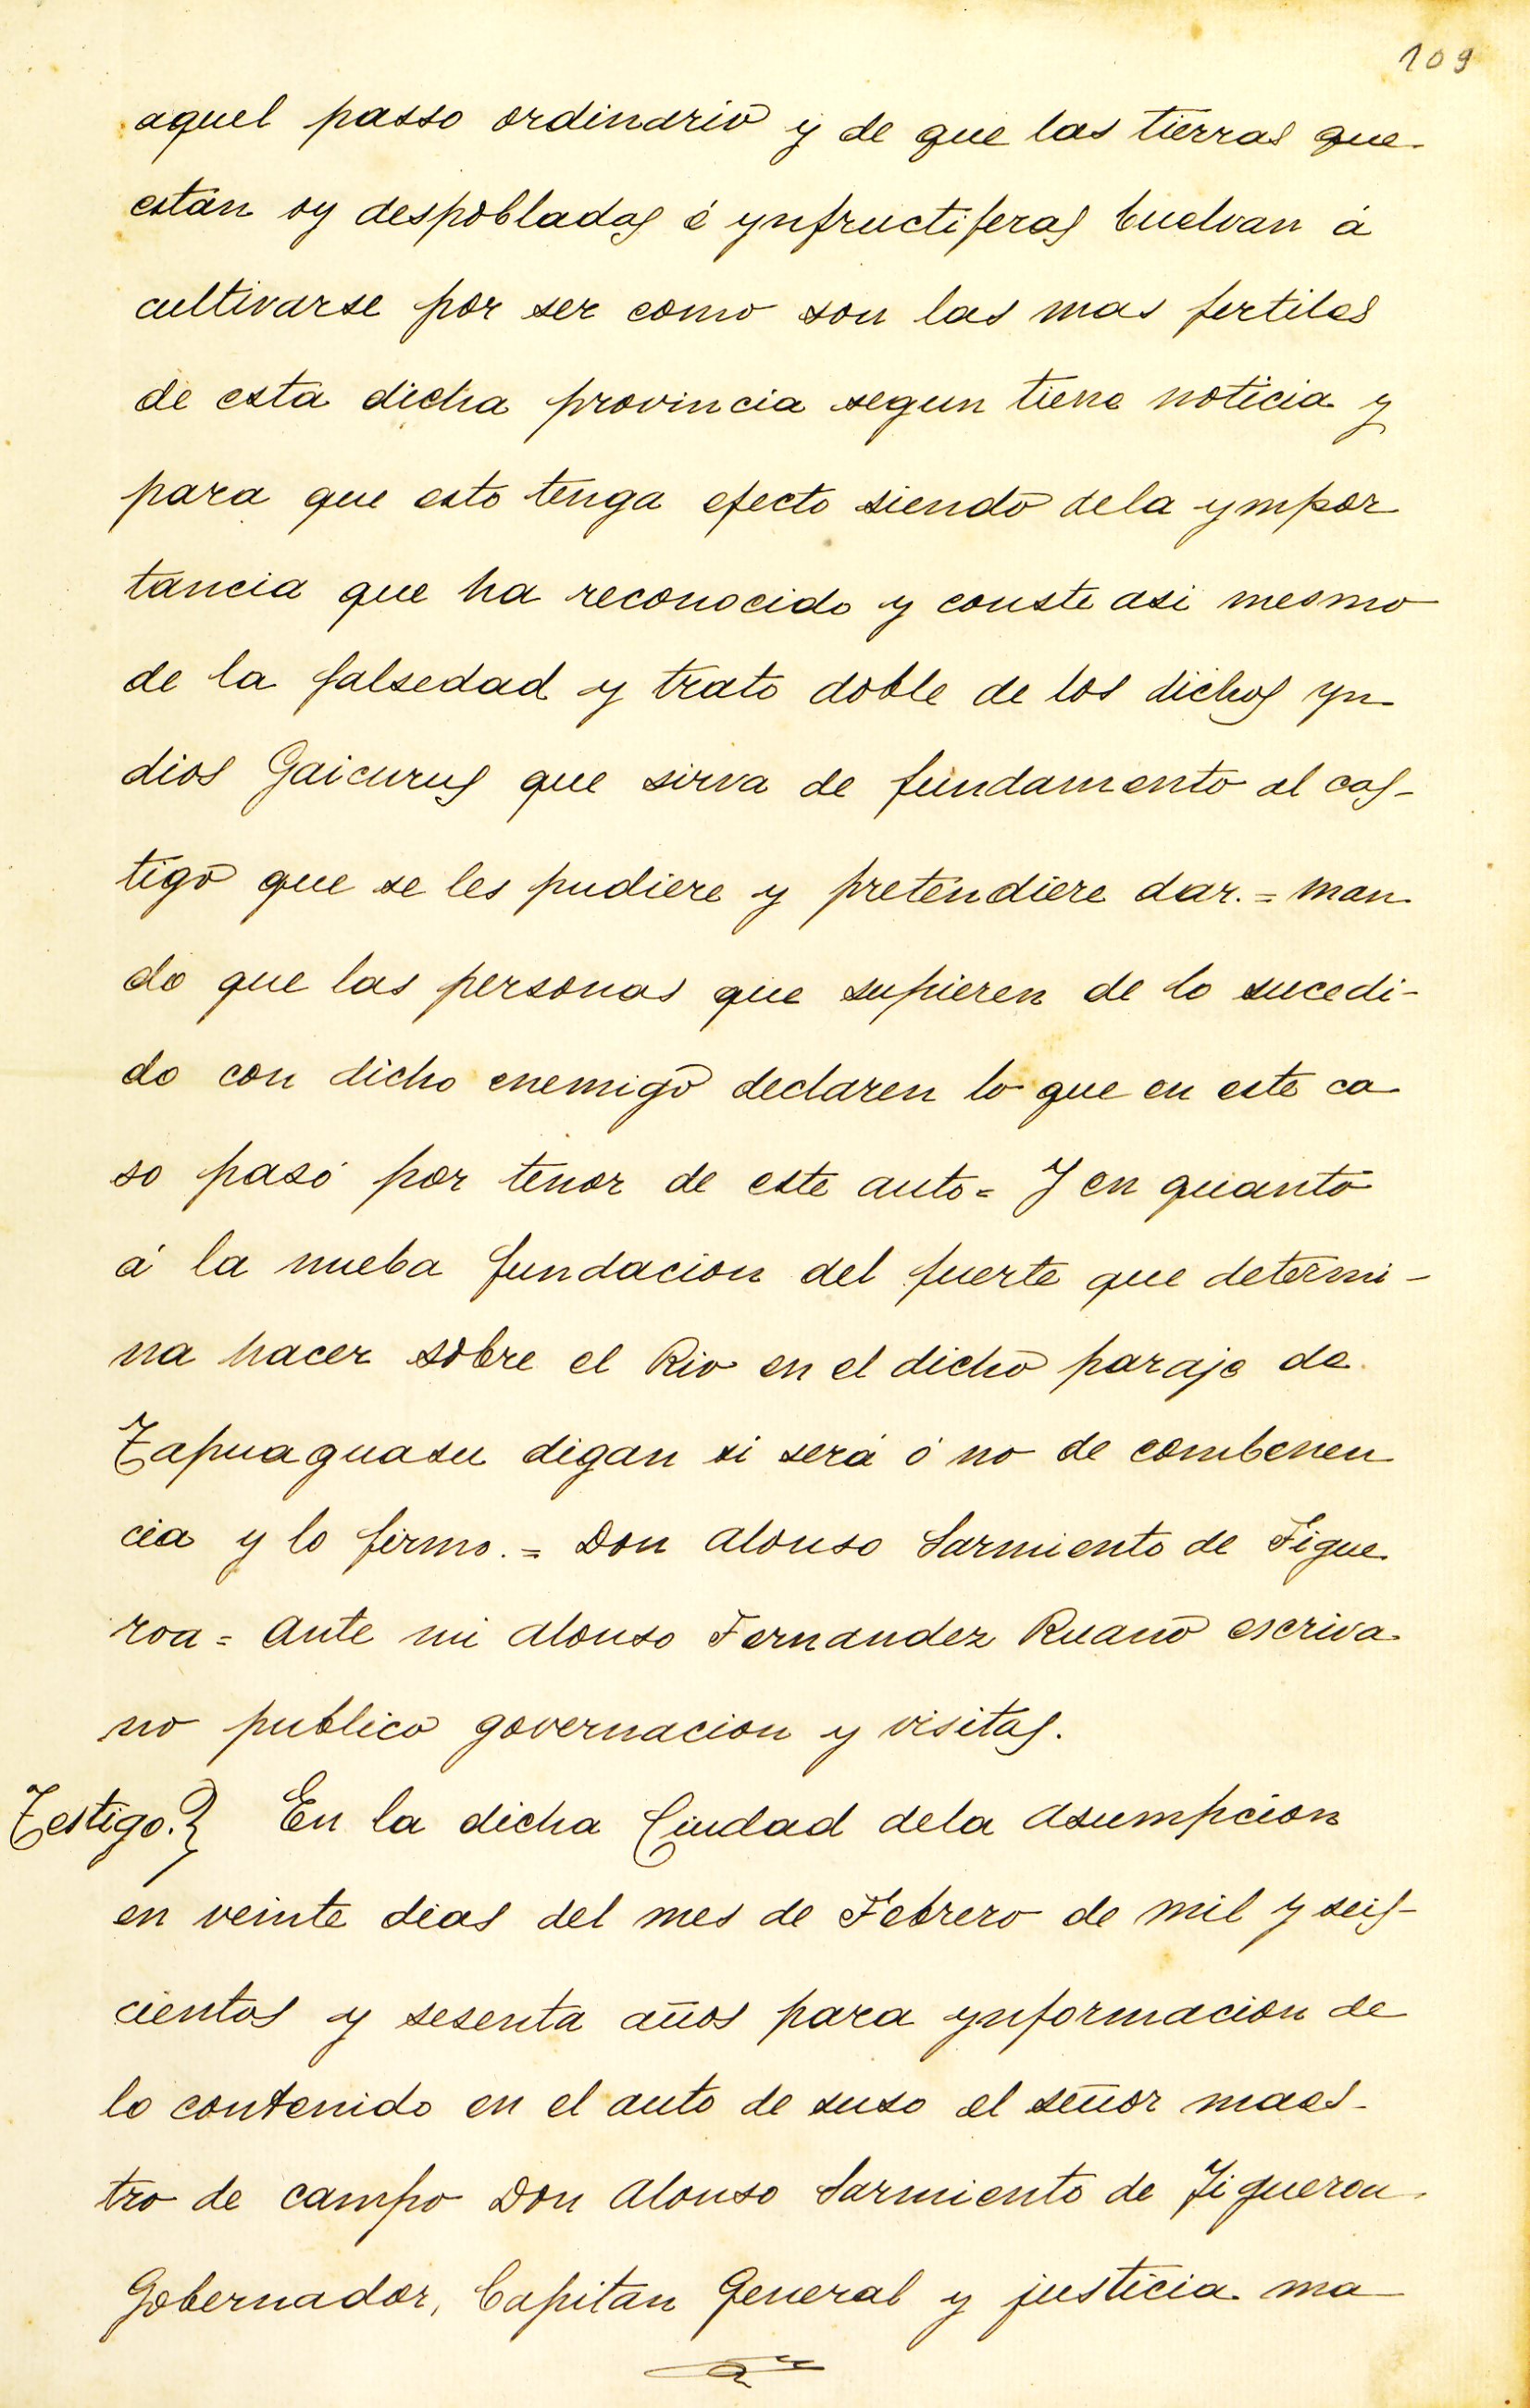 109
aquel passo ordinario y de que las tierras que
están oy despobladas é ynfructiferas buelvan á
cultivarse por ser como son las mas fertiles
de esta dicha provincia segun tiene noticia y
para que esto tenga efecto siendo dela ympor
tancia que ha reconocido y conste asi mesmo
de la falsedad y trato doble de los dichos yn
dios Gaicurus que sirva de fundamento al cas-
tigo que se les pudiere y pretendiere dar. = man
do que las personas que supieren de lo sucedi-
do con dicho enemigo declaren lo que en este ca
so pasó por tenor de este auto = Y en quanto
á la nueba fundacion del fuerte que determi-
na hacer sobre el Rio en el dicho paraje de
Tapuaguasu digan si será ó no de combenen
cia y lo firmo. = Don Alonso Sarmiento de Figue
roa = Ante mi Alonso Fernandez Ruano escriva
no publico governacion y visitas.
Testigo.} En la dicha Ciudad dela Asumpcion
en veinte dias del mes de Febrero de mil y seis-
cientos y sesenta años para ynformacion de
lo contenido en el auto de suso el señor maes-
tro de campo Don Alonso Sarmiento de Figueroa
Gobernador, Capitan General y justicia ma